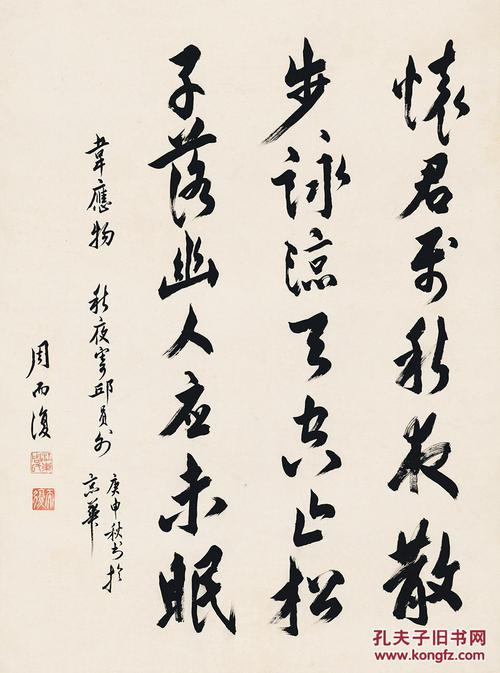 懷君属秋夜散
步詠涼天空山松
子落幽人应未眠
韋應物 秋夜寄邱員外
庚申秋书於
京華
周而復
孔夫子旧书网
www.kongfz.com